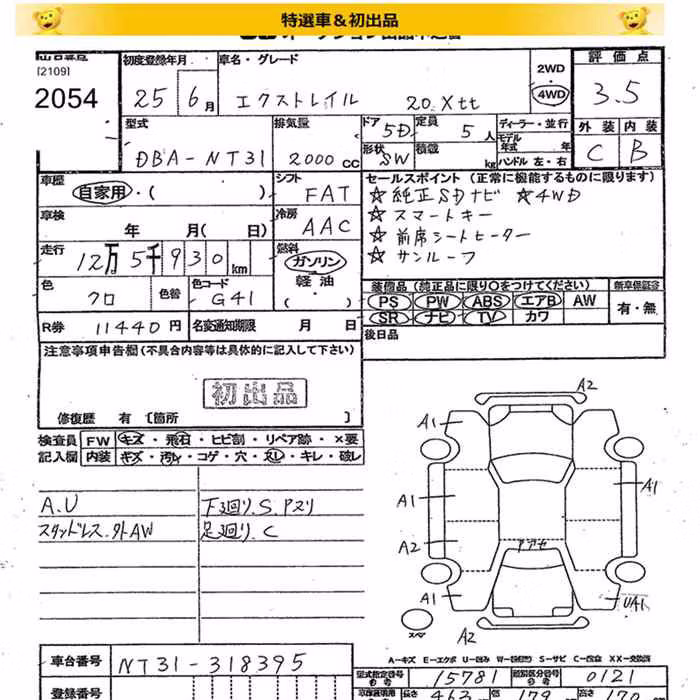 特選車＆初出品
[2109]
2054
初度登録年月
25 6月
車名・グレード
エクストレイル 20Xtt
2WD
4WD
評価点
3.5
外装 内装
C B
型式
DBA-NT31
排気量
2000 cc
ドア 5D
定員 5 人
形状 SW
積載 kg
ディーラー・並行
モデル年式 年
ハンドル 左・右
車歴
自家用・( )
シフト
FAT
車検
年 月( 日)
冷房
AAC
走行
12万5千930km
燃料
ガソリン
軽油
・( )
色
クロ
色替
色コード
G41
R券 11440円
名変通知期限 月 日
セールスポイント (正常に機能するものに限ります)
☆純正SDナビ ☆4WD
☆スマートキー
☆前席シートヒーター
☆サンルーフ
装備品(純正品に限り○をつけてください)
PS PW ABS エアB AW
SR ナビ TV カワ
新車保証書
有・無
後日品
注意事項申告欄(不具合内容等は具体的に記入して下さい)
初出品
修復歴 有 〔箇所 〕
検査員記入欄
FW キズ・飛石・ヒビ割・リペア跡・×要
内装 キズ・汚れ・コゲ・穴・スレ・キレ・破レ
A.U
スタッドレス.外AW
下廻り.S.Pスリ
足廻り.C
A2
A1
A1
A1
A2
アアセ
A1
UA1
スペア
A2
A-キズ E-エクボ U-凹み W-(修理跡) S-サビ C-腐食 XX-交換済
車台番号
NT31-318395
登録番号
型式指定番号 15781
類別区分番号 0121
長さ 463
179